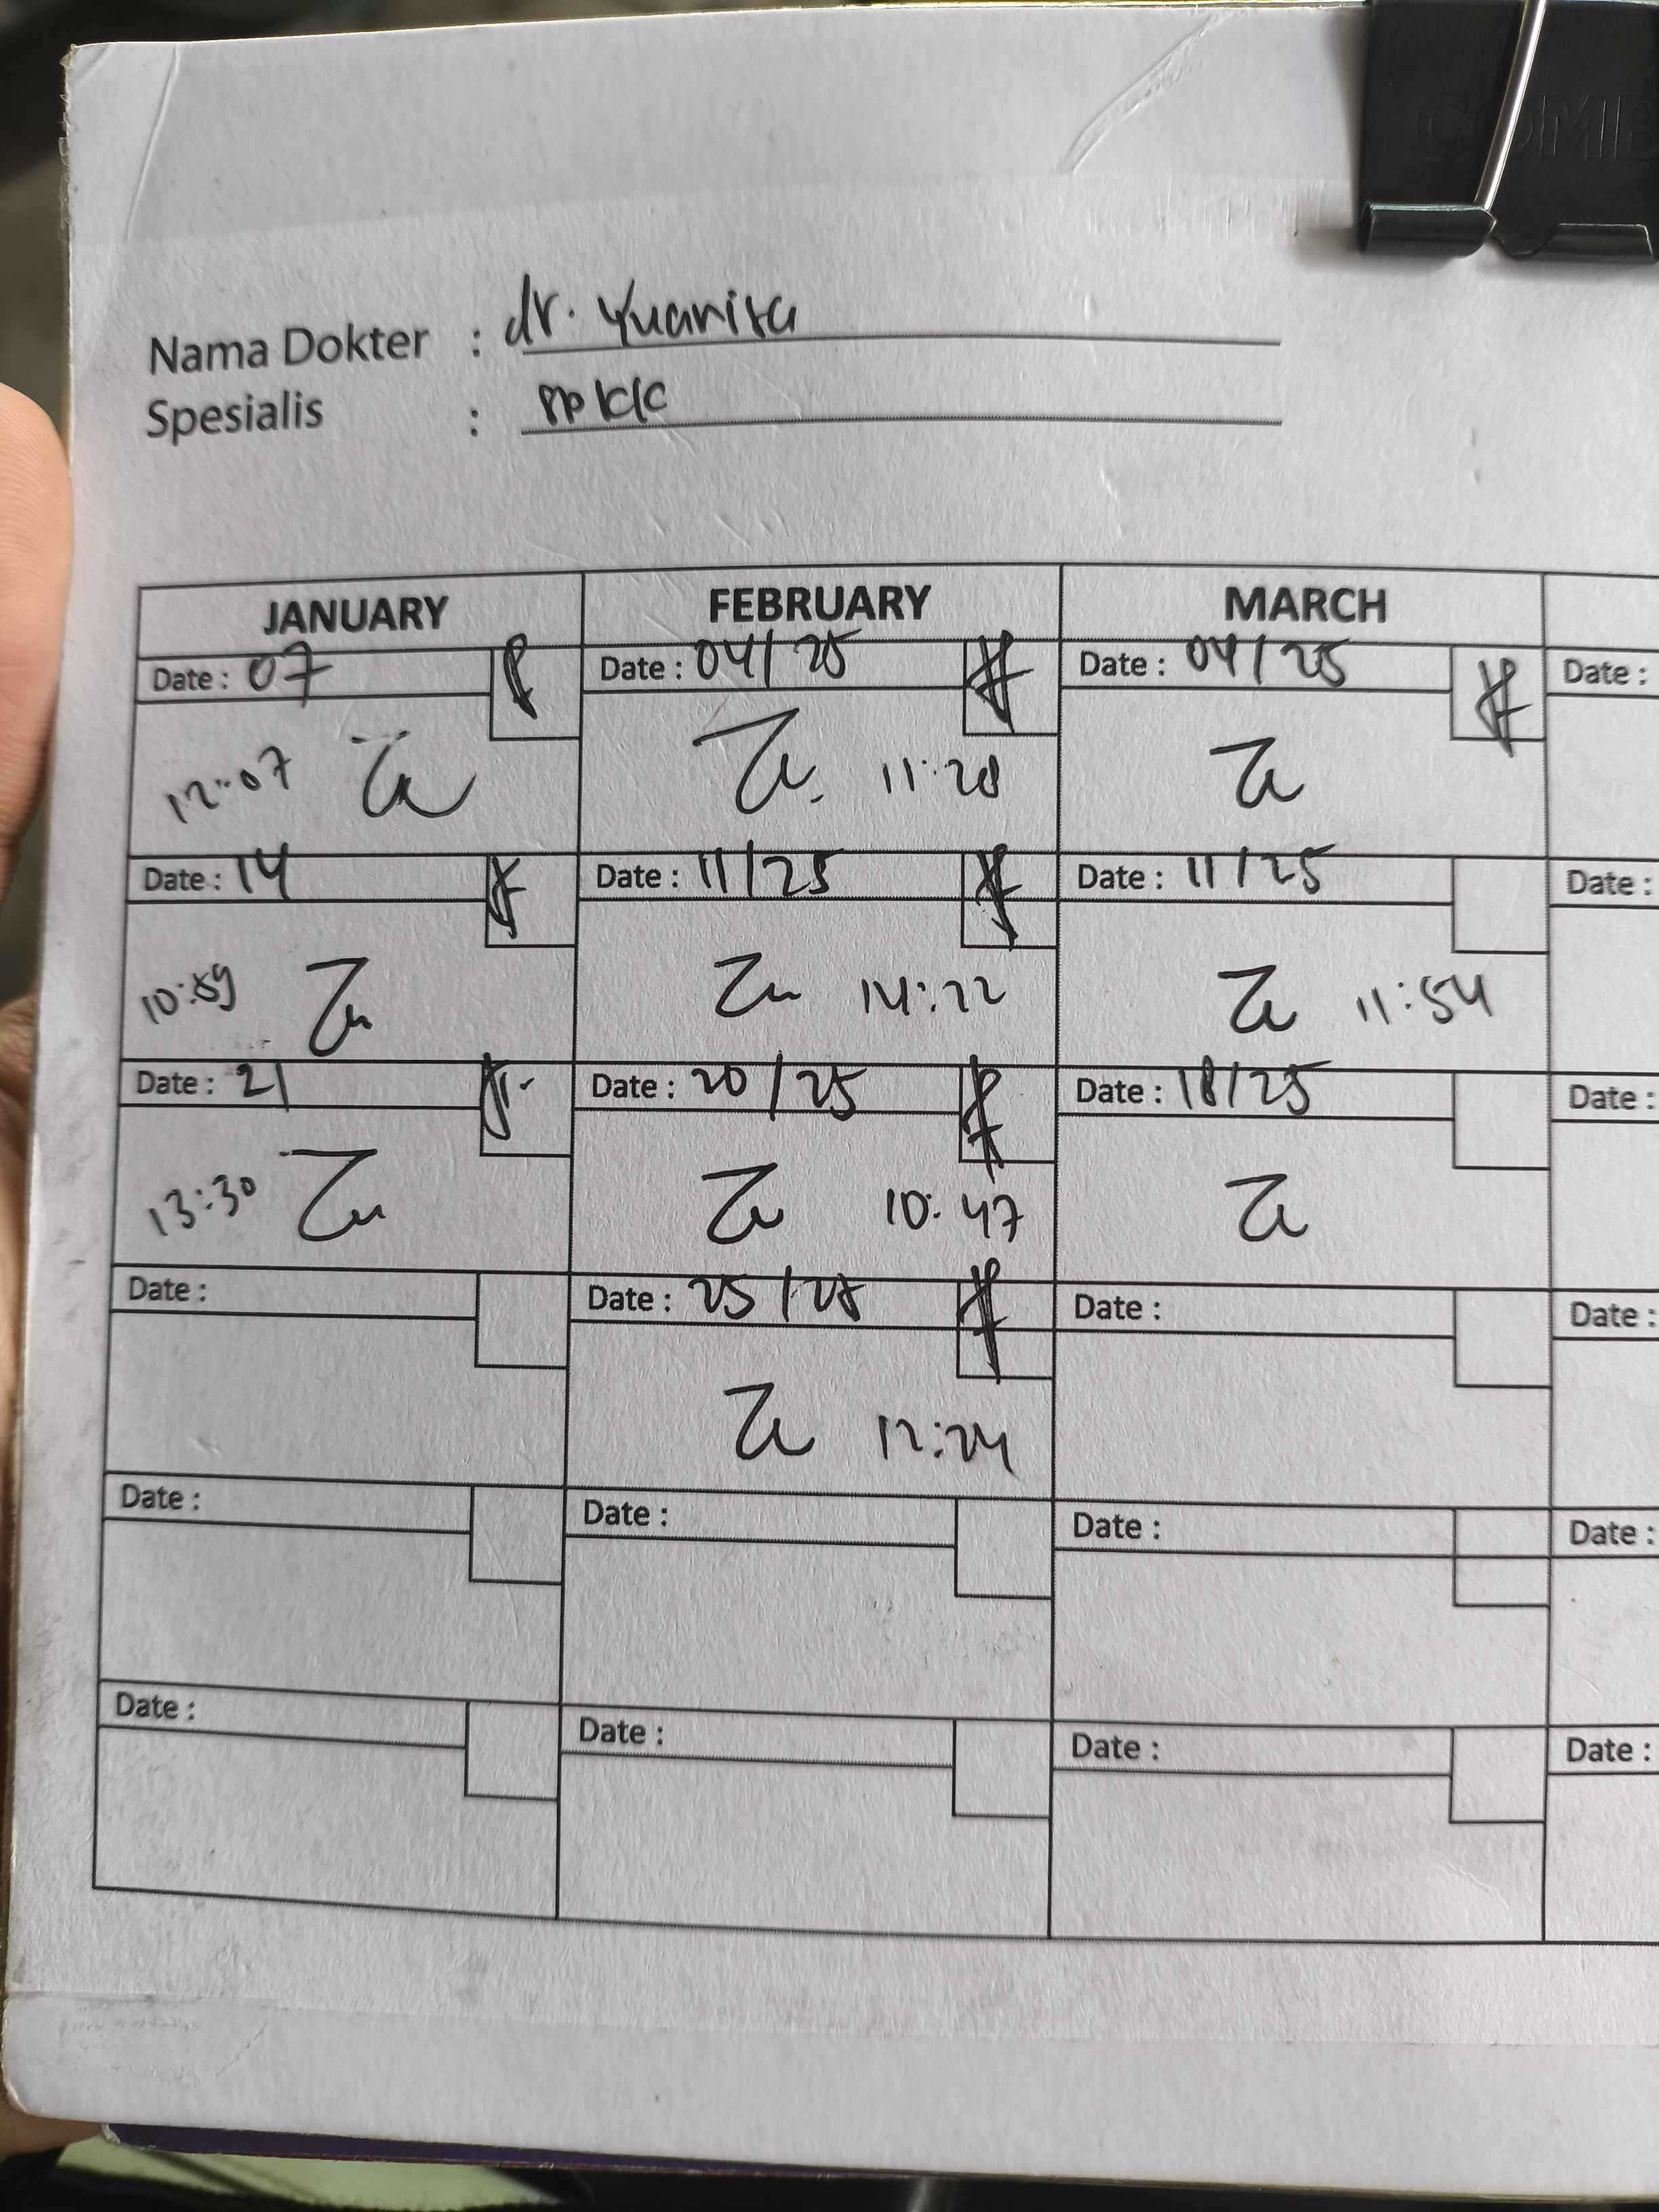 COMB
Nama Dokter : dr. Yuanita
Spesialis :
JANUARY FEBRUARY MARCH
Date : 07 Date : 04/25 Date : 04/25 Date :
12:07 11:28
Date : 14 Date : 11/25 Date : 11/25 Date :
10:59 14:22 11:54
Date : 21 Date : 20/25 Date : 18/25 Date :
13:30 10:47
Date : Date : 25/25 Date : Date :
12:24
Date : Date : Date : Date :
Date : Date : Date : Date :